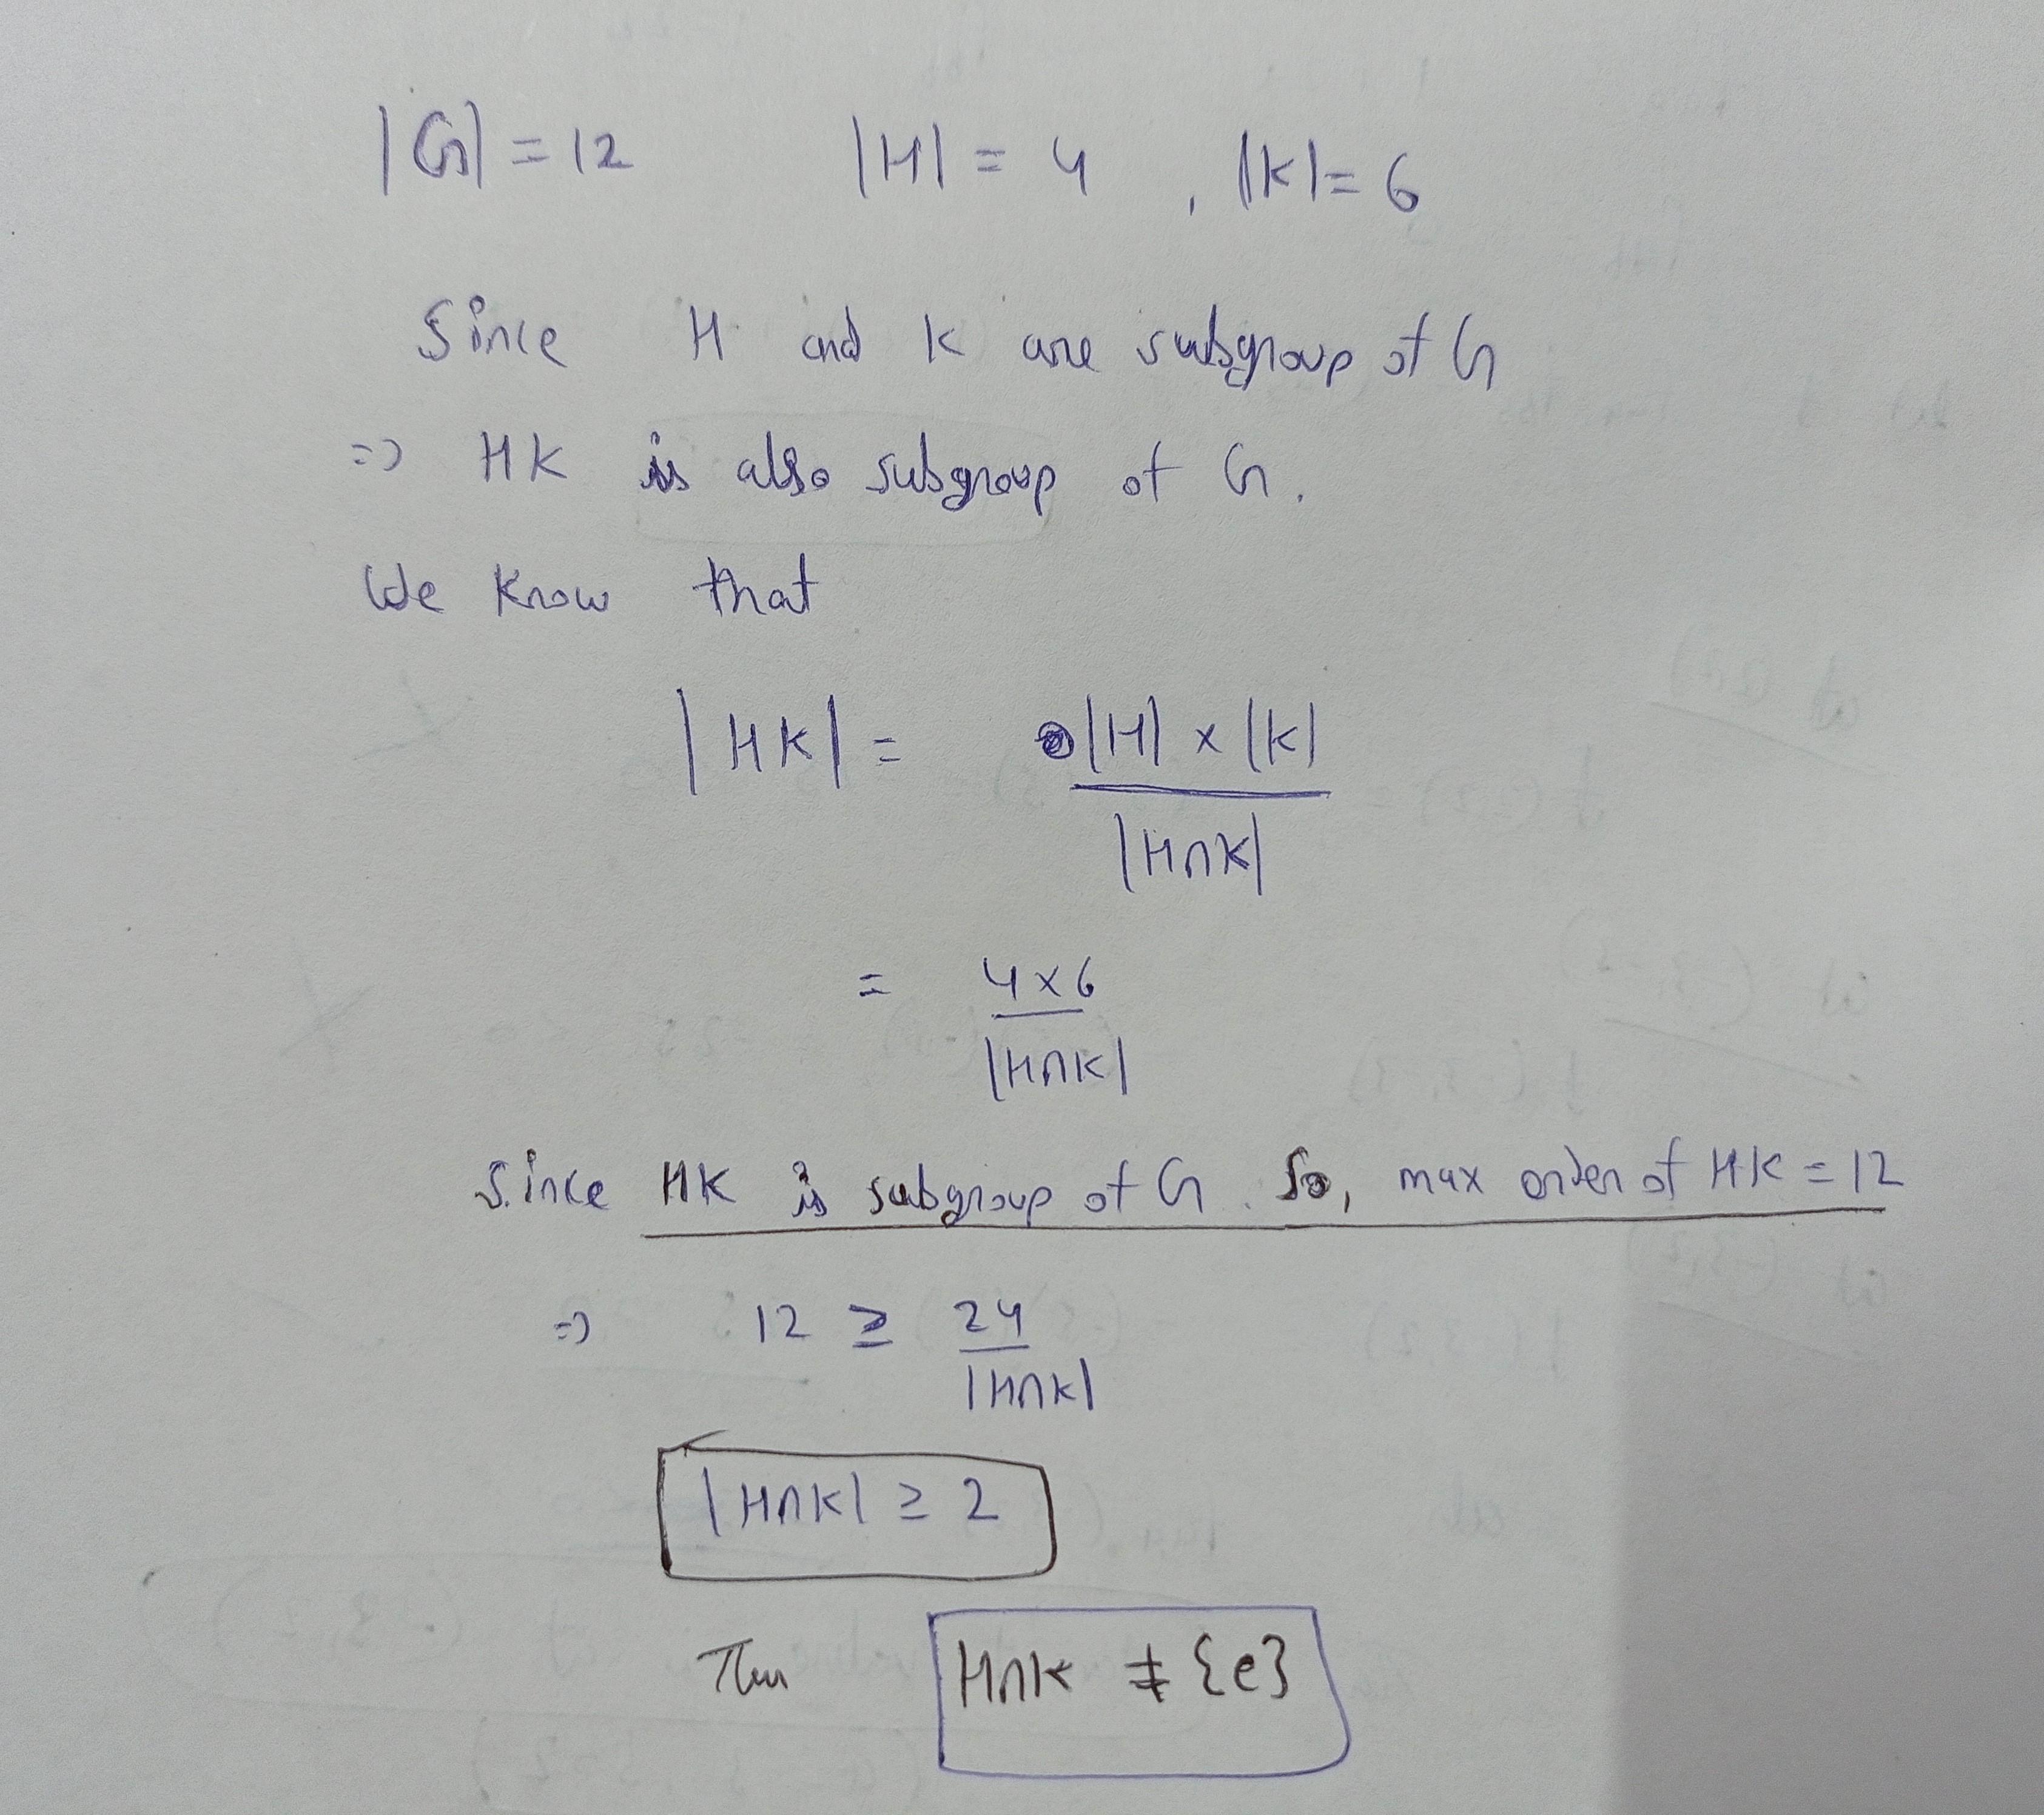 |G| = 12 |H| = 4 , |K| = 6
Since H and K are subgroup of G
=> HK is also subgroup of G.
We know that
|HK| = |H| x |K|
|H∩K|
= 4x6
|H∩K|
Since HK is subgroup of G. So, max order of HK = 12
=> 12 ≥ 24
|H∩K|
|H∩K| ≥ 2
Then H∩K ≠ {e}